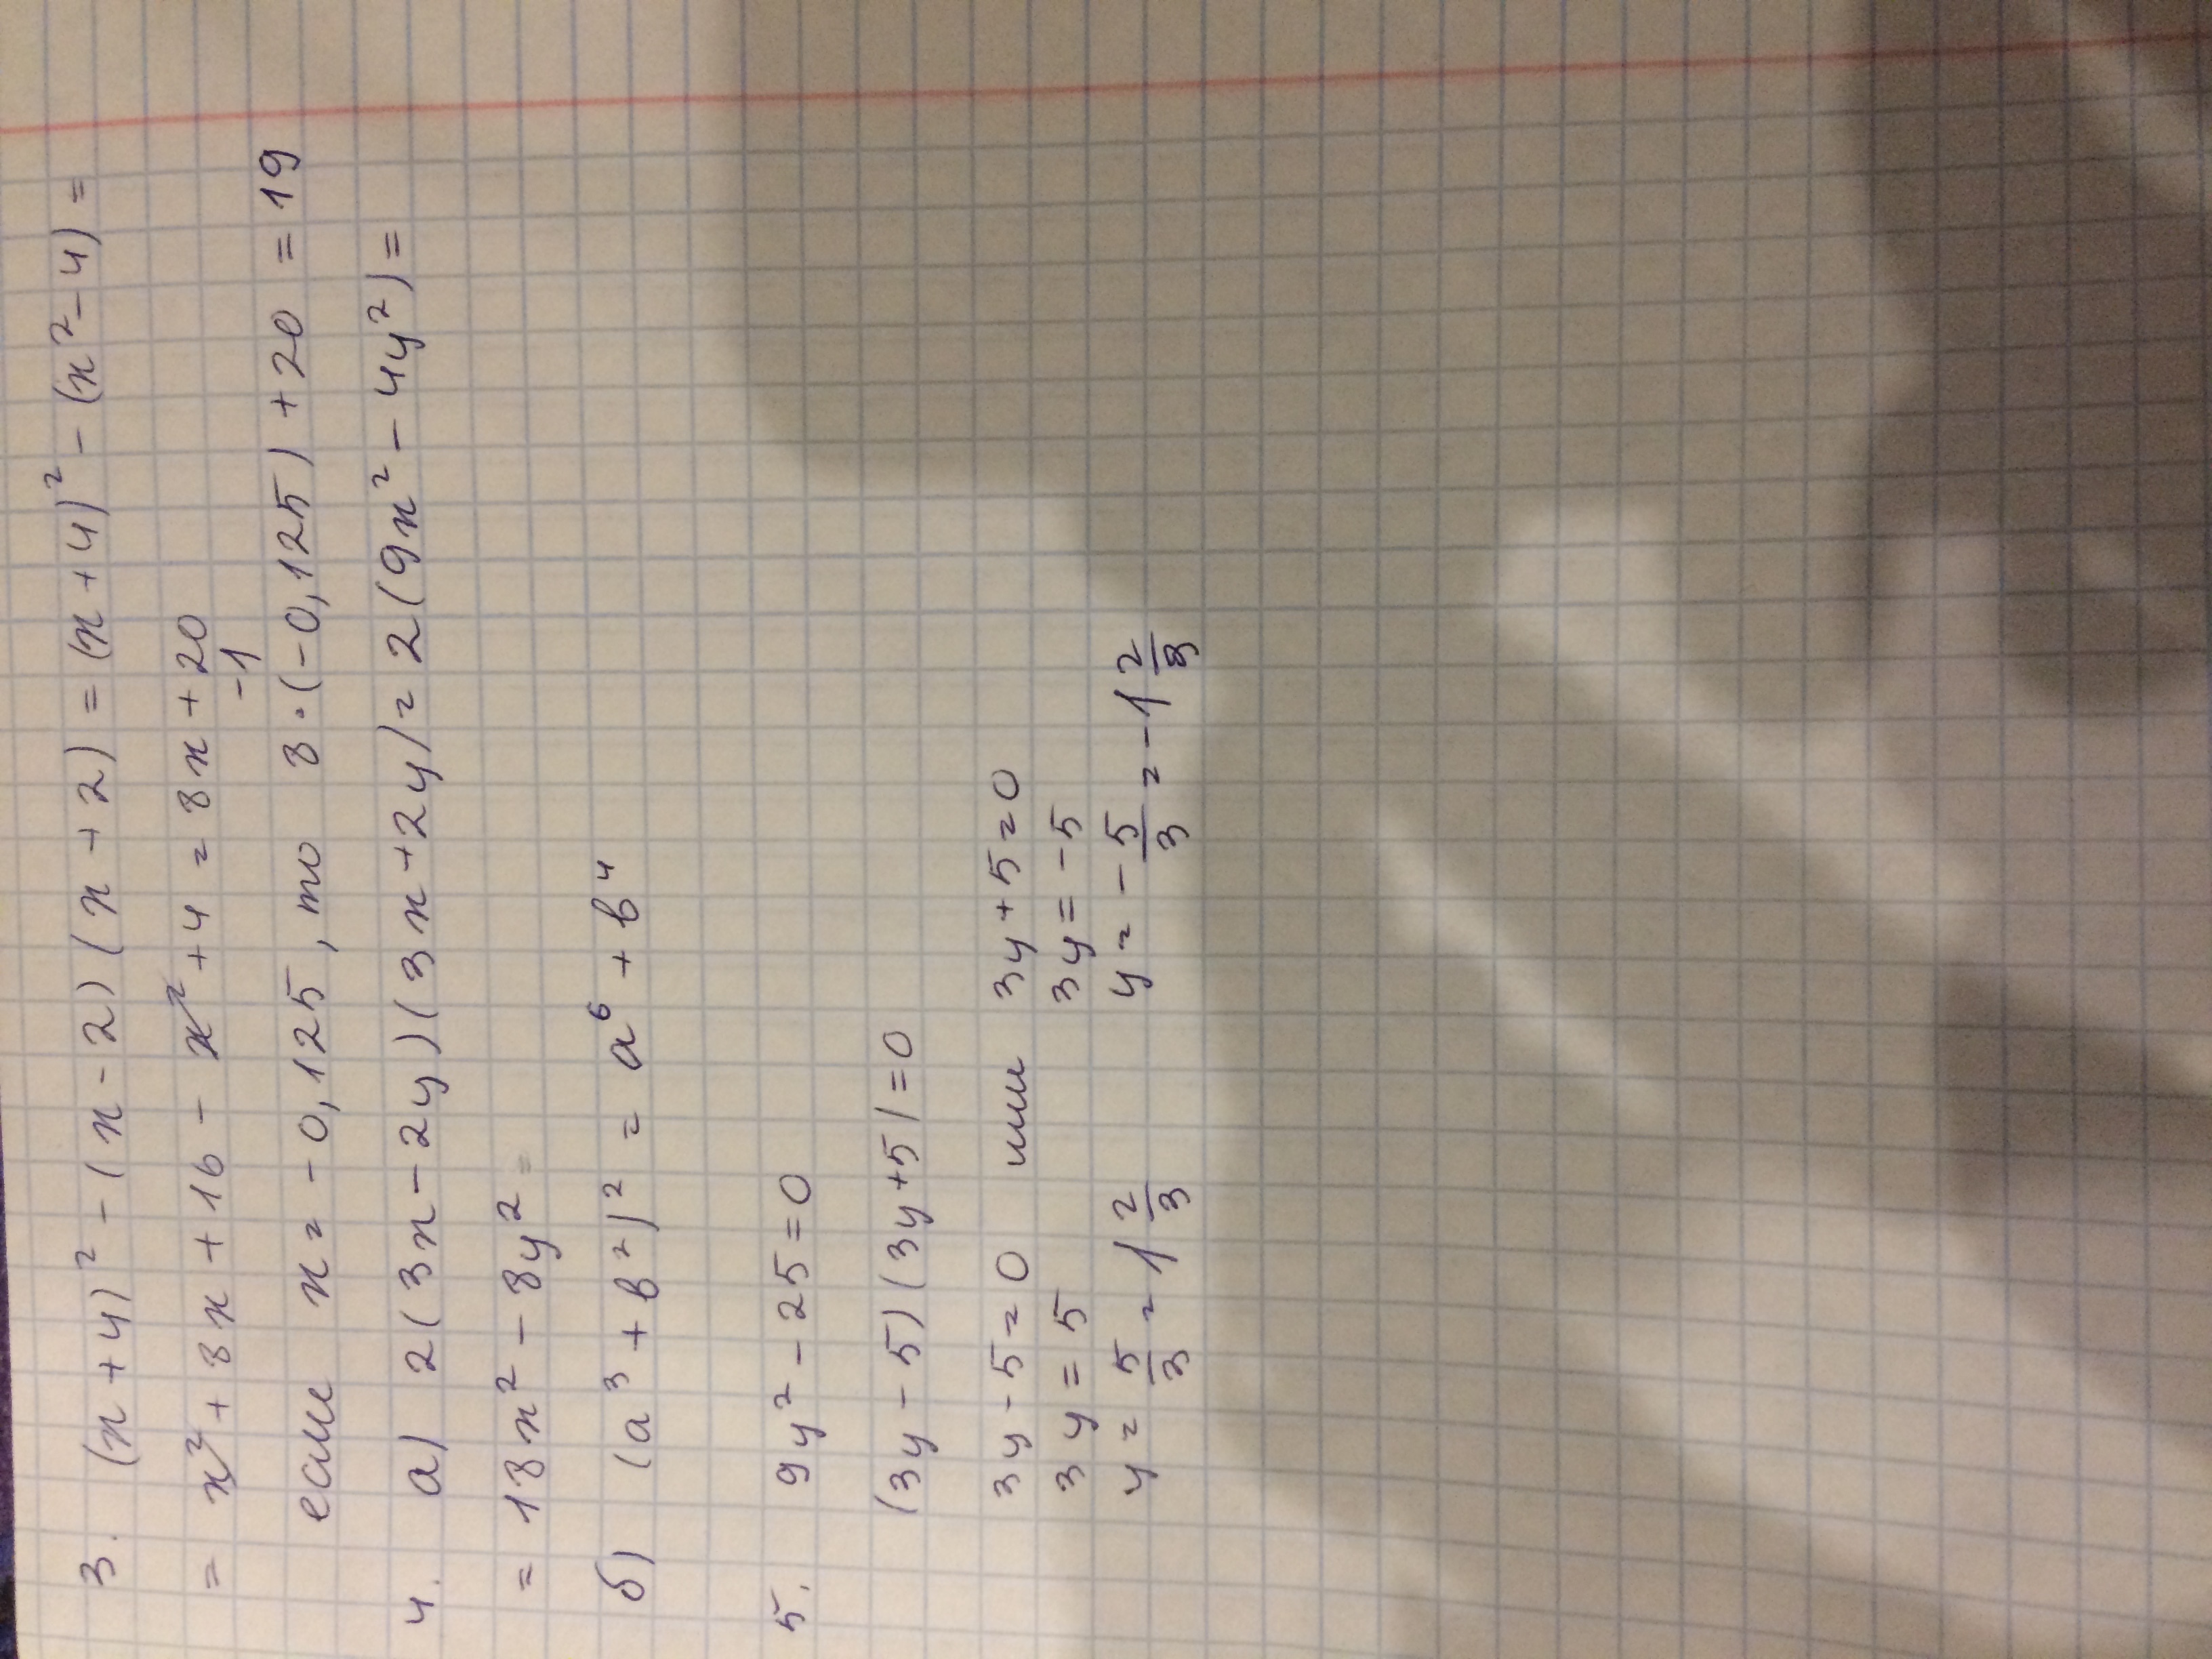 3. (x+4)² - (x-2)(x+2) = (x+4)² - (x²-4) =
= x² + 8x + 16 - x² + 4 = 8x + 20
-1
если x = -0,125, то 8·(-0,125) + 20 = 19
4. а) 2(3x-2y)(3x+2y) = 2(9x² - 4y²) =
= 18x² - 8y² =
б) (a³ + b²)² = a⁶ + b⁴
5. 9y² - 25 = 0
(3y - 5)(3y+5) = 0
3y - 5 = 0 или 3y + 5 = 0
3y = 5 3y = -5
y = 5/3 = 1 2/3 y = - 5/3 = -1 2/3